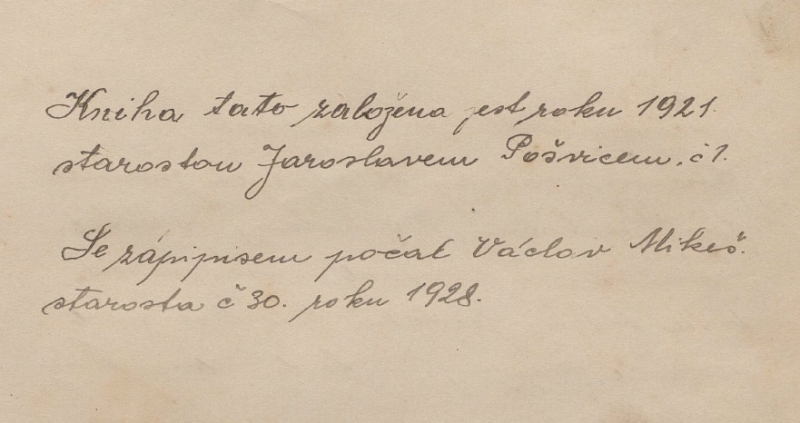 Kniha tato založena jest roku 1921.
starostou Jaroslavem Pošvicem. č 1.
Se zápipisem počal Václav Mikeš.
starosta č 30. roku 1928.